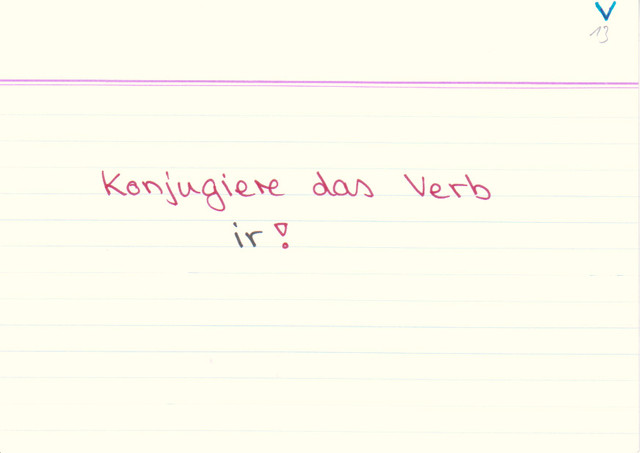 V
13
Konjugiere das Verb
ir!